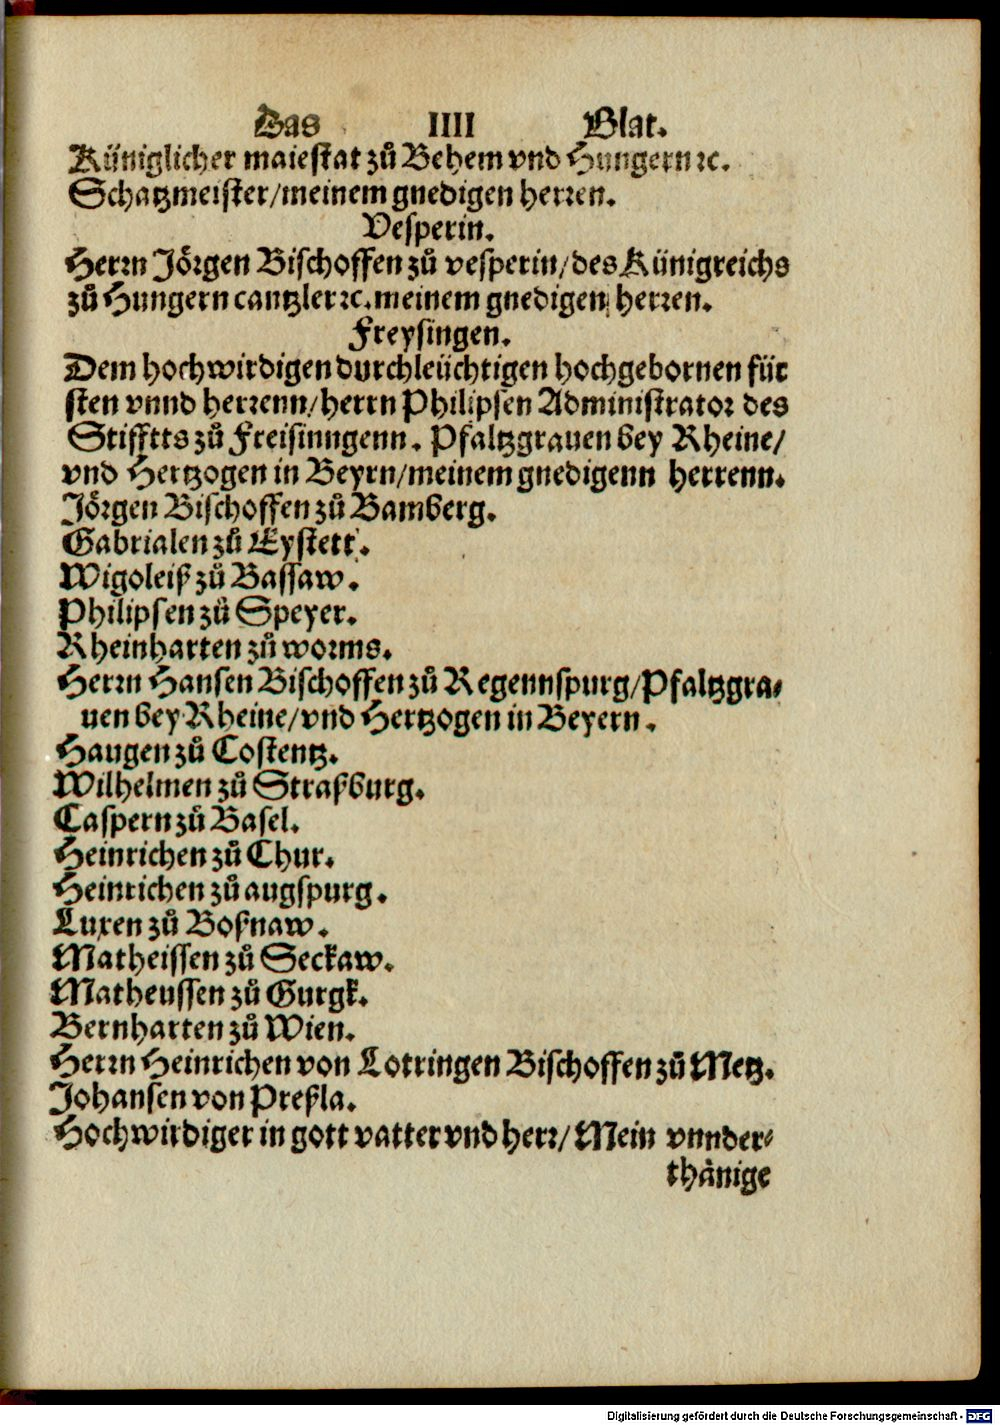 Das IIII Blat.
Küniglicher maiestat zů Behem vnd Hungern ꝛc.
Schatzmeister/meinem gnedigen herꝛen.
Vesperin.
Herꝛn Jörgen Bischoffen zů vesperin/des Künigreichs
zů Hungern cantzler ꝛc. meinem gnedigen herꝛen.
Freysingen.
Dem hochwirdigen durchleüchtigen hochgebornen für
sten vnnd herꝛenn/herrn Philipsen Administratoꝛ des
Stifftts zů Freisinngenn. Pfaltzgrauen bey Rheine/
vnd Hertzogen in Beyrn/meinem gnedigenn herrenn.
Jöꝛgen Bischoffen zů Bamberg.
Gabrialen zů Eystett.
Wigoleiß zů Bassaw.
Philipsen zů Speyer.
Rheinharten zů woꝛms.
Herꝛn Hansen Bischoffen zů Regennspurg/Pfaltzgra⸗
uen bey Rheine/vnd Hertzogen in Beyern.
Haugen zů Costentz.
Wilhelmen zů Straßburg.
Caspern zů Basel.
Heinrichen zů Chur.
Heinrichen zů augspurg.
Luxen zů Boßnaw.
Matheissen zů Seckaw.
Matheussen zů Gurgk.
Bernharten zů Wien.
Herꝛn Heinrichen von Lotringen Bischoffen zů Metz.
Johansen von Preßla.
Hochwirdiger in gott vatter vnd herꝛ/Mein vnnder⸗
thånige
Digitalisierung gefördert durch die Deutsche Forschungsgemeinschaft - DFG